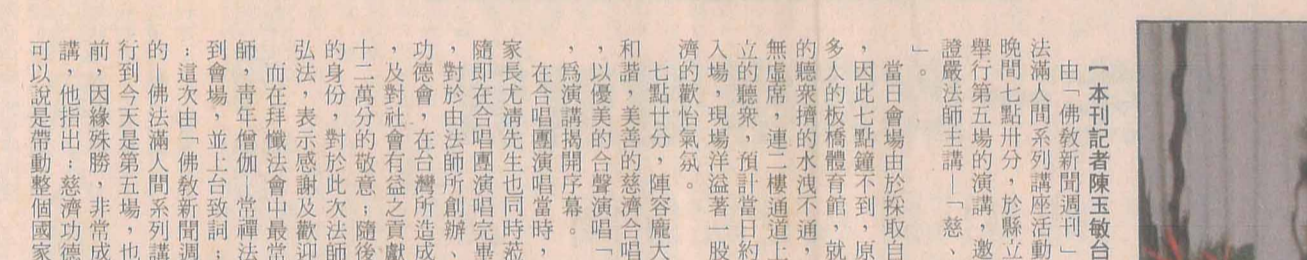 【本刊記者陳玉敏台
由「佛教新聞週刊」
法滿人間系列講座活動
晚間七點卅分，於縣立
舉行第五場的演講，邀
證嚴法師主講—「慈、
」。
當日會場由於採取自
，因此七點鐘不到，原
多人的板橋體育館，就
的聽衆擠的水洩不通，
無虛席，連二樓通道上
立的聽衆，預計當日約
入場，現場洋溢著一股
濟的歡怡氣氛。
七點廿分，陣容龐大
和諧，美善的慈濟合唱
，以優美的合聲演唱「
，爲演講揭開序幕。
在合唱團演唱當時，
家長尤清先生也同時蒞
隨即在合唱團演唱完畢
，對於由法師所創辦、
功德會，在台灣所造成
，及對社會有益之貢獻
十二萬分的敬意；隨後
的身份，對於此次法師
弘法，表示感謝及歡迎
而在拜懺法會中最常
師，靑年僧伽—常禪法
到會場，並上台致詞；
：這次由「佛教新聞週
的—佛法滿人間系列講
行到今天是第五場，也
前，因緣殊勝，非常成
講，他指出：慈濟功德
可以說是帶動整個國家